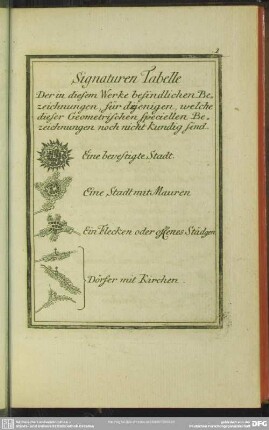 Signaturen Tabelle
Der in diesem Werke befindlichen Be-
zeichnungen, für diejenigen, welche
dieser Geometrischen speciellen Be-
zeichnungen noch nicht kundig send.
Eine bevestigte Stadt.
Eine Stadt mit Mauren
Ein Flecken oder offenes Städgen
Dörfer mit Kirchen.
DFG